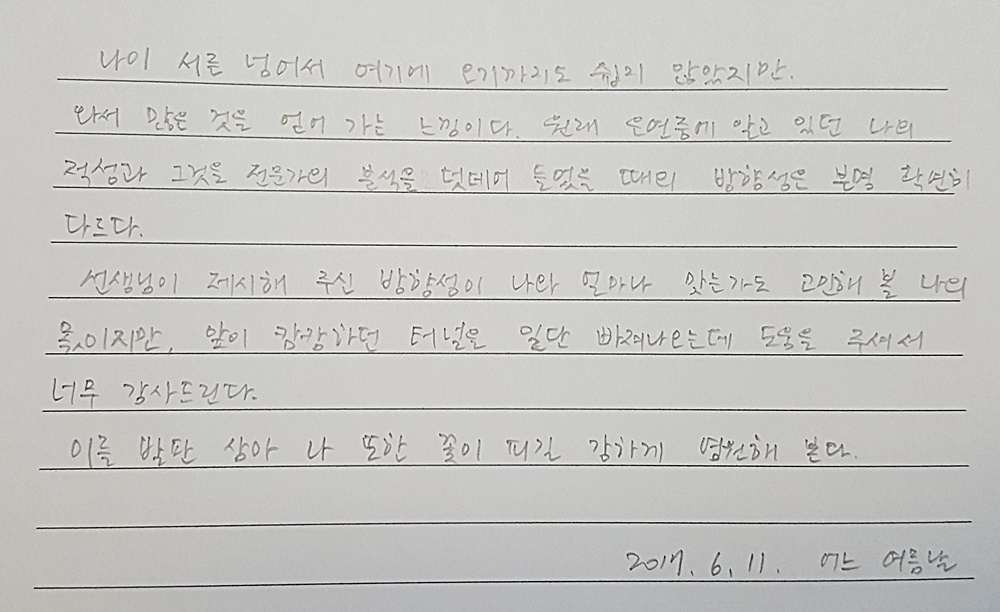 나이 서른 넘어서 여기에 오기까지도 쉽지 않았지만.
와서 많은 것을 얻어 가는 느낌이다. 원래 은연중에 알고 있던 나의
적성과 그것을 전문가의 분석을 덧데어 들었을 때의 방향성은 분명 확연히
다르다.
선생님이 제시해 주신 방향성이 나와 얼마나 맞는가도 고민해 볼 나의
몫이지만, 앞이 캄캄하던 터널을 일단 빠져나오는데 도움을 주셔서
너무 감사드린다.
이를 발판 삼아 나 또한 꽃이 피길 강하게 염원해 본다.
2017. 6. 11. 어느 여름날